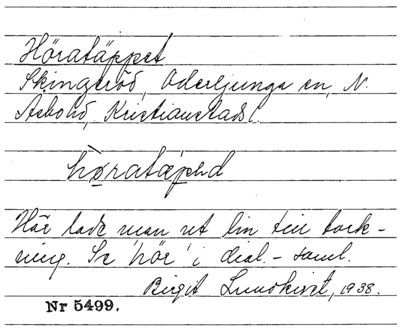 Höratäppet
Skingeröd, Oderljunga sn, N.
Åsbohd, Kristianstads l.
hòratæpəd
Här lade man ut lin till tork-
ning. Se 'hör' i dial.-saml.
Birgit Lundkvist, 1938.
Nr 5499.